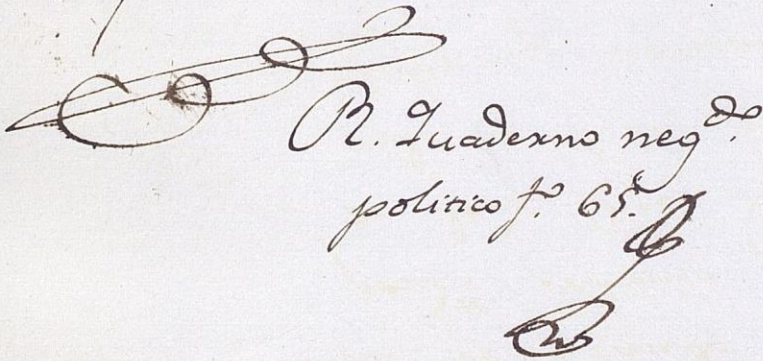 R. Quaderno neg.do
politico f.o 65.